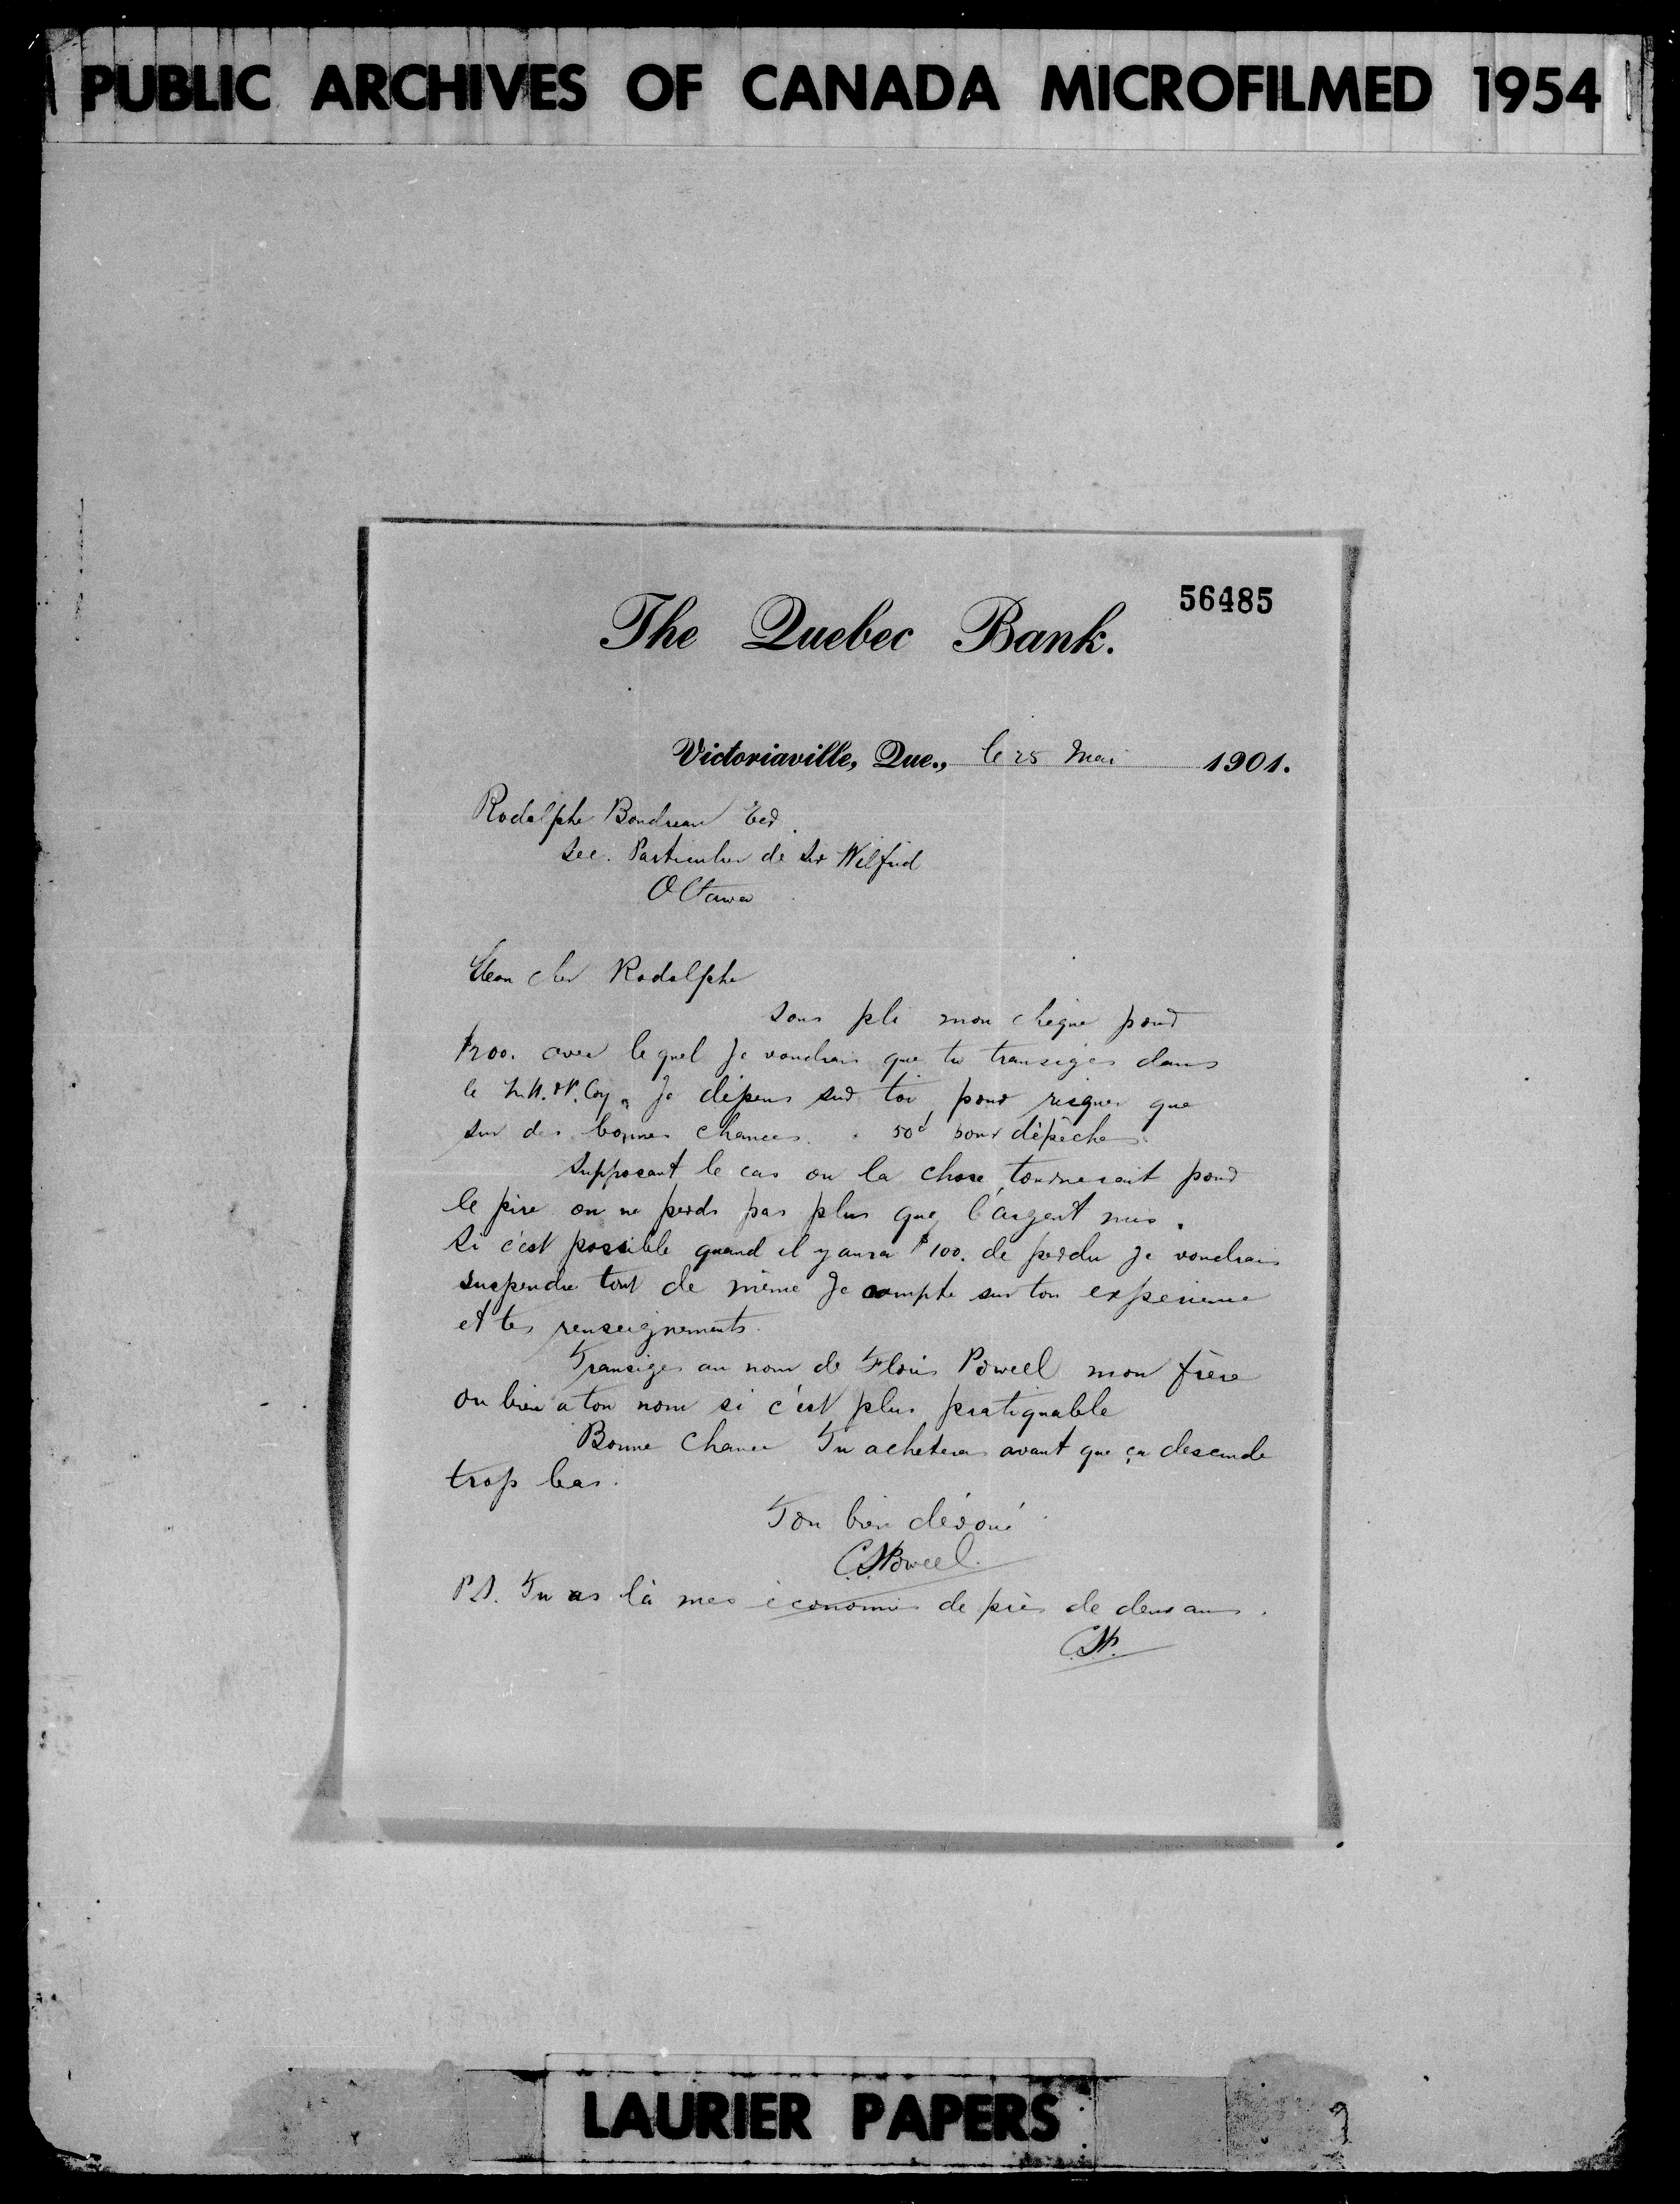 PUBLIC ARCHIVES OF CANADA MICROFILMED 1954
56485
The Quebec Bank.
Victoriaville, Que., le 25 Mai 1901.
Rodolphe Boudreau Ecr.
Sec. Particulier de Sir Wilfrid
Ottawa
Mon cher Rodolphe
Sous pli mon chèque pour
$200. avec lequel je voudrais que tu transiges dans
le Coy. Je dépens sur toi, pour risquer que
sur des bonnes chances. 50¢ pour dépêches.
Supposant le cas ou la chose tournerait pour
le pire on ne perds pas plus que l'argent mis.
Si c'est possible quand il y aura $100. de perdu je voudrais
suspendre tout de même Je compte sur ton experience
et tes renseignements.
Transiges au nom de Floris Poweel mon frère
ou bien a ton nom si c'est plus pratiquable
Bonne Chance Tu acheteras avant que ça descende
trop bas.
Ton bien dévoué
C.S. Poweel.
P.S. Tu as là mes économies de près de deux ans.
C.S.P.
LAURIER PAPERS